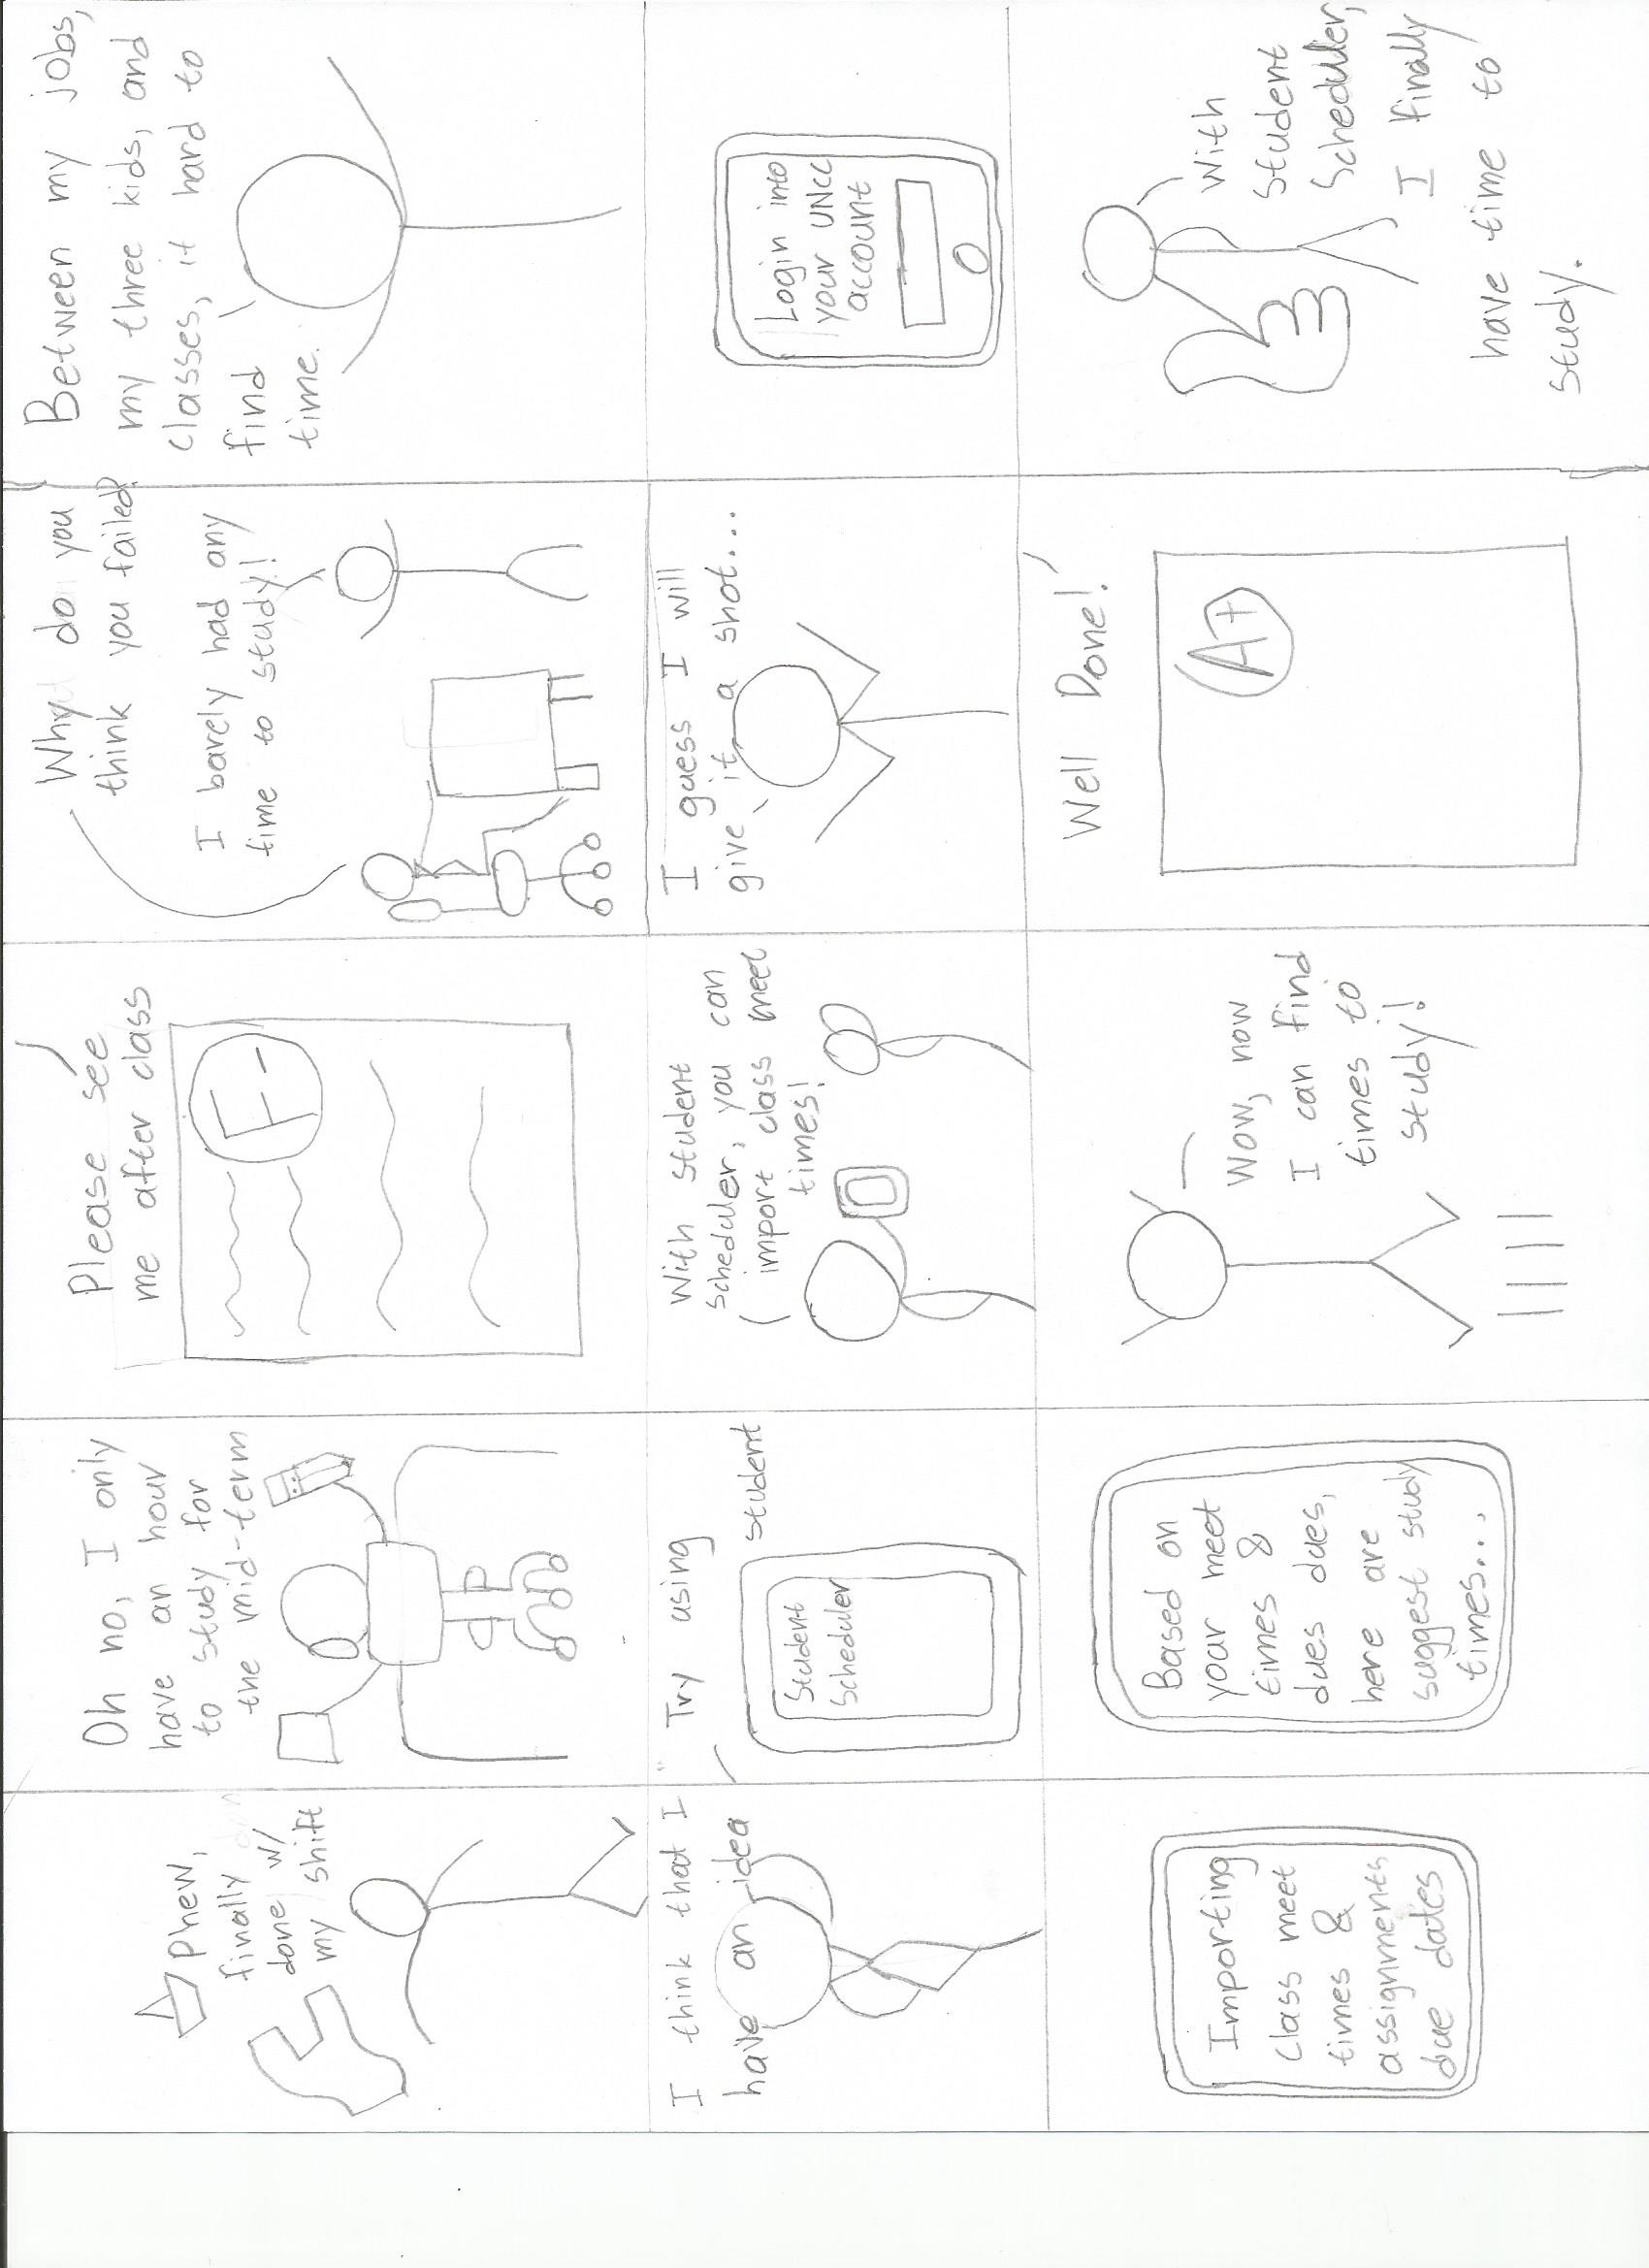 Phew,
finally
done w/
my shift
Oh no, I only
have an hour
to study for
the mid-term
Please see
me after class
F-
Why do you
think you failed?
I barely had any
time to study!
Between my jobs,
my three kids, and
classes, it hard to
find
time.
I think that I
have an idea
Try using
student
Student
Scheduler
With student
scheduler, you can
import class meet
times!
I guess I will
give it a shot...
Login into
your UNCC
account
Importing
class meet
times &
assignments
due dates
Based on
your meet
times &
dues dues,
here are
suggest study
times...
Wow, now
I can find
times to
study!
Well Done!
A+
With
Student
Scheduler,
I finally
have time to
study.